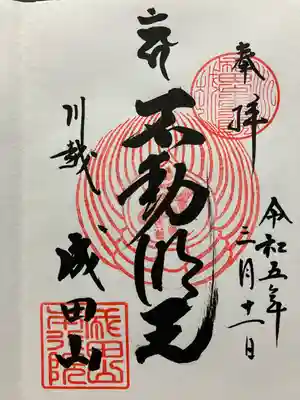 奉拝
令和五年
三月十一日
不動明王
川越
成田山